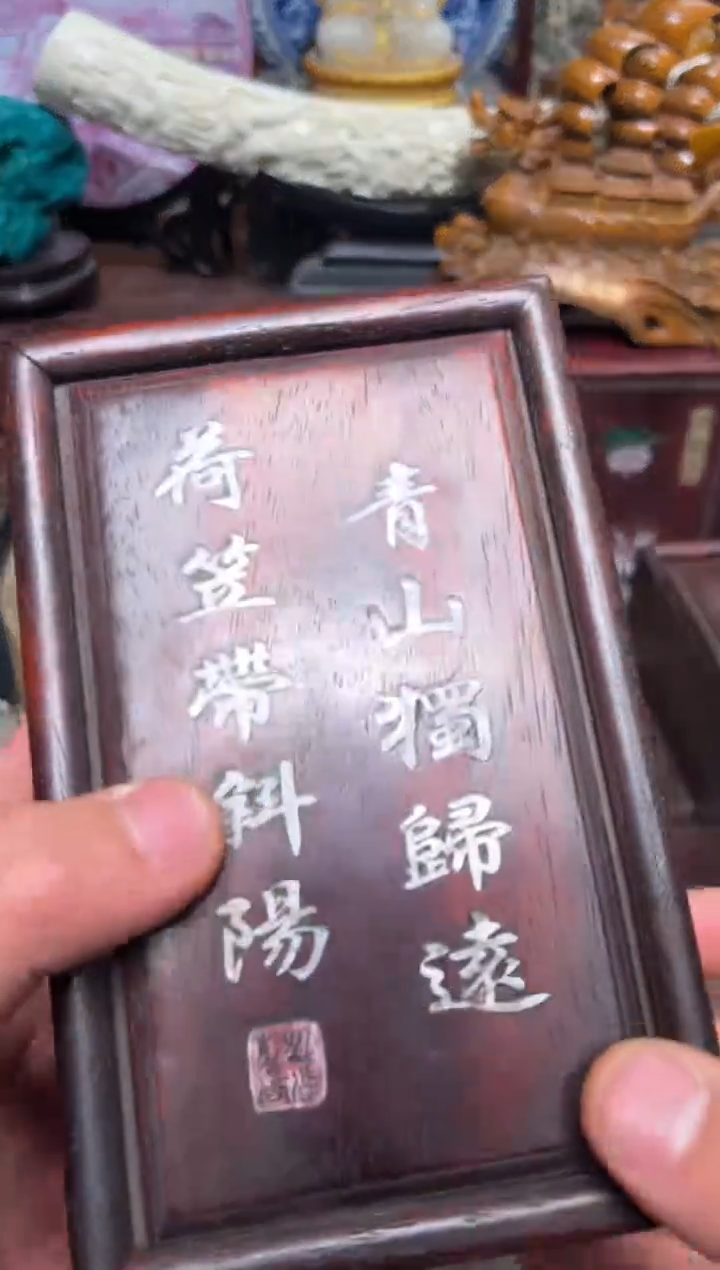 青山獨歸遠
荷笠帶斜陽